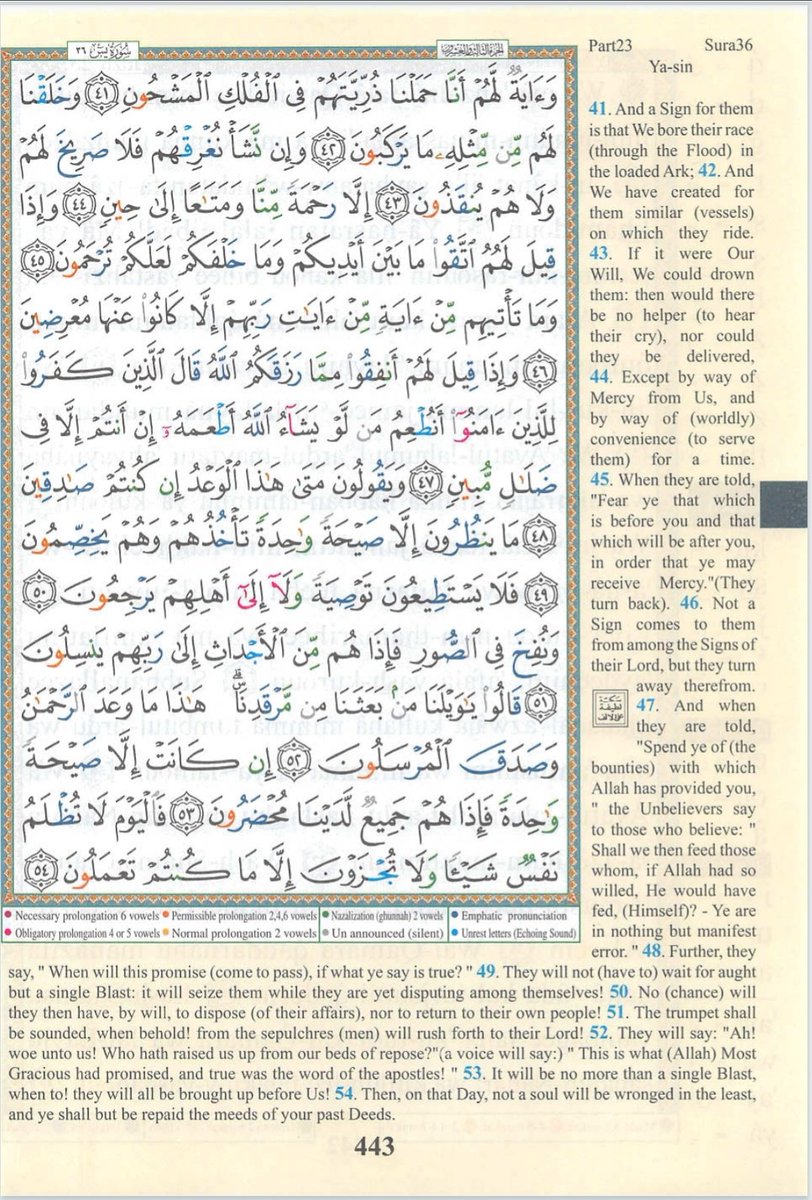 سُورَةُ يسٓ ٣٦
الجزء الثالث والعشرون
وَءَايَةٌ لَّهُمْ أَنَّا حَمَلْنَا ذُرِّيَّتَهُمْ فِى ٱلْفُلْكِ ٱلْمَشْحُونِ ٤١ وَخَلَقْنَا
لَهُم مِّن مِّثْلِهِۦ مَا يَرْكَبُونَ ٤٢ وَإِن نَّشَأْ نُغْرِقْهُمْ فَلَا صَرِيخَ لَهُمْ
وَلَا هُمْ يُنقَذُونَ ٤٣ إِلَّا رَحْمَةً مِّنَّا وَمَتَـٰعًا إِلَىٰ حِينٍ ٤٤ وَإِذَا
قِيلَ لَهُمُ ٱتَّقُوا۟ مَا بَيْنَ أَيْدِيكُمْ وَمَا خَلْفَكُمْ لَعَلَّكُمْ تُرْحَمُونَ ٤٥
وَمَا تَأْتِيهِم مِّنْ ءَايَةٍ مِّنْ ءَايَـٰتِ رَبِّهِمْ إِلَّا كَانُوا۟ عَنْهَا مُعْرِضِينَ
٤٦ وَإِذَا قِيلَ لَهُمْ أَنفِقُوا۟ مِمَّا رَزَقَكُمُ ٱللَّهُ قَالَ ٱلَّذِينَ كَفَرُوا۟
لِلَّذِينَ ءَامَنُوٓا۟ أَنُطْعِمُ مَن لَّوْ يَشَآءُ ٱللَّهُ أَطْعَمَهُۥٓ إِنْ أَنتُمْ إِلَّا فِى
ضَلَـٰلٍ مُّبِينٍ ٤٧ وَيَقُولُونَ مَتَىٰ هَـٰذَا ٱلْوَعْدُ إِن كُنتُمْ صَـٰدِقِينَ
٤٨ مَا يَنظُرُونَ إِلَّا صَيْحَةً وَٰحِدَةً تَأْخُذُهُمْ وَهُمْ يَخِصِّمُونَ
٤٩ فَلَا يَسْتَطِيعُونَ تَوْصِيَةً وَلَآ إِلَىٰٓ أَهْلِهِمْ يَرْجِعُونَ ٥٠
وَنُفِخَ فِى ٱلصُّورِ فَإِذَا هُم مِّنَ ٱلْأَجْدَاثِ إِلَىٰ رَبِّهِمْ يَنسِلُونَ
٥١ قَالُوا۟ يَـٰوَيْلَنَا مَنۢ بَعَثَنَا مِن مَّرْقَدِنَا ۜ ۗ هَـٰذَا مَا وَعَدَ ٱلرَّحْمَـٰنُ
وَصَدَقَ ٱلْمُرْسَلُونَ ٥٢ إِن كَانَتْ إِلَّا صَيْحَةً
وَٰحِدَةً فَإِذَا هُمْ جَمِيعٌ لَّدَيْنَا مُحْضَرُونَ ٥٣ فَٱلْيَوْمَ لَا تُظْلَمُ
نَفْسٌ شَيْـًٔا وَلَا تُجْزَوْنَ إِلَّا مَا كُنتُمْ تَعْمَلُونَ ٥٤
Necessary prolongation 6 vowels Permissible prolongation 2,4,6 vowels Nazalization (ghunnah) 2 vowels Emphatic pronunciation
Obligatory prolongation 4 or 5 vowels Normal prolongation 2 vowels Un announced (silent) Unrest letters (Echoing Sound)
Part23 Sura36
Ya-sin
41. And a Sign for them
is that We bore their race
(through the Flood) in
the loaded Ark; 42. And
We have created for
them similar (vessels)
on which they ride.
43. If it were Our
Will, We could drown
them: then would there
be no helper (to hear
their cry), nor could
they be delivered,
44. Except by way of
Mercy from Us, and
by way of (worldly)
convenience (to serve
them) for a time.
45. When they are told,
"Fear ye that which
is before you and that
which will be after you,
in order that ye may
receive Mercy."(They
turn back). 46. Not a
Sign comes to them
from among the Signs of
their Lord, but they turn
away therefrom.
47. And when
they are told,
"Spend ye of (the
bounties) with which
Allah has provided you,
" the Unbelievers say
to those who believe: "
Shall we then feed those
whom, if Allah had so
willed, He would have
fed, (Himself)? - Ye are
in nothing but manifest
error. " 48. Further, they
say, " When will this promise (come to pass), if what ye say is true? " 49. They will not (have to) wait for aught
but a single Blast: it will seize them while they are yet disputing among themselves! 50. No (chance) will
they then have, by will, to dispose (of their affairs), nor to return to their own people! 51. The trumpet shall
be sounded, when behold! from the sepulchres (men) will rush forth to their Lord! 52. They will say: "Ah!
woe unto us! Who hath raised us up from our beds of repose?"(a voice will say:) " This is what (Allah) Most
Gracious had promised, and true was the word of the apostles! " 53. It will be no more than a single Blast,
when to! they will all be brought up before Us! 54. Then, on that Day, not a soul will be wronged in the least,
and ye shall but be repaid the meeds of your past Deeds.
443